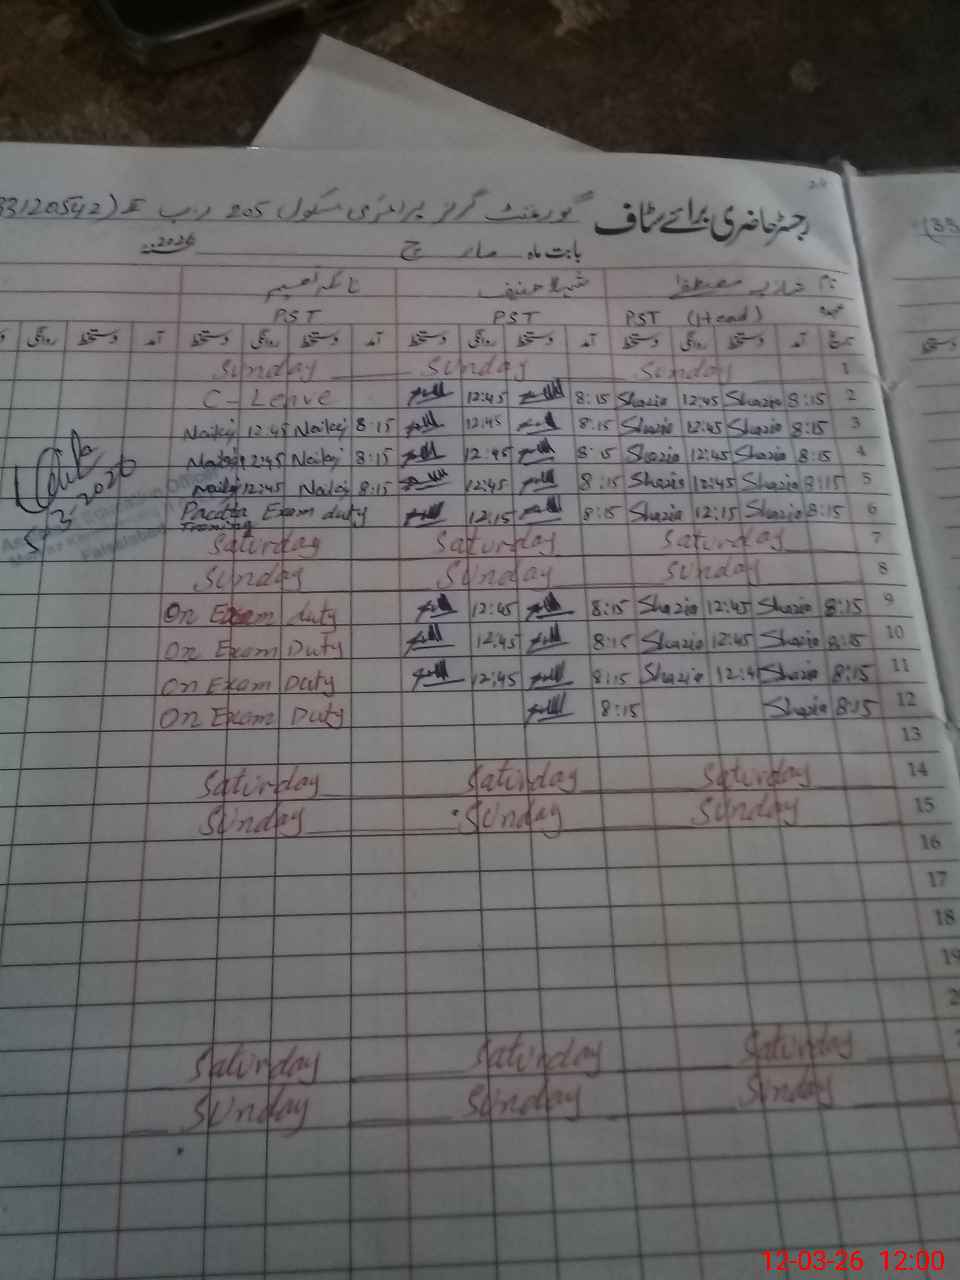 رجسٹر حاضری برائے سٹاف گورنمنٹ گرلز پرائمری سکول 205 ر۔ب II (33120542
بابت ماہ مارچ 2026
نام شازیہ مصطفےٰ شہلا حنیف نائلہ
عہدہ PST (Head) PST PST
تاریخ آمد دستخط روانگی دستخط آمد دستخط روانگی دستخط آمد دستخط روانگی دستخط آمد دستخط روانگی
1 Sunday Sunday Sunday
2 8:15 Shazia 12:45 Shazia 8:15 12:45 C-Leave
3 8:15 Shazia 12:45 Shazia 8:15 12:45 8:15 Naila 12:45 Naila
4 8:15 Shazia 12:45 Shazia 8:15 12:45 8:15 Naila 12:45 Naila
5 8:15 Shazia 12:45 Shazia 8:15 12:45 8:15 Naila 12:45 Naila
6 8:15 Shazia 12:15 Shazia 8:15 12:15 Exam duty
7 Saturday Saturday Saturday
8 Sunday Sunday Sunday
9 8:15 Shazia 12:45 Shazia 8:15 12:45 On Exam duty
10 8:15 Shazia 12:45 Shazia 8:15 12:45 On Exam Duty
11 8:15 Shazia 12:45 Shazia 8:15 12:45 On Exam Duty
12 8:15 Shazia 8:15 On Exam Duty
13
14 Saturday Saturday Saturday
15 Sunday Sunday Sunday
16
17
18
19
Saturday Saturday Saturday
Sunday Sunday Sunday
5-3-2026
12-03-26 12:00